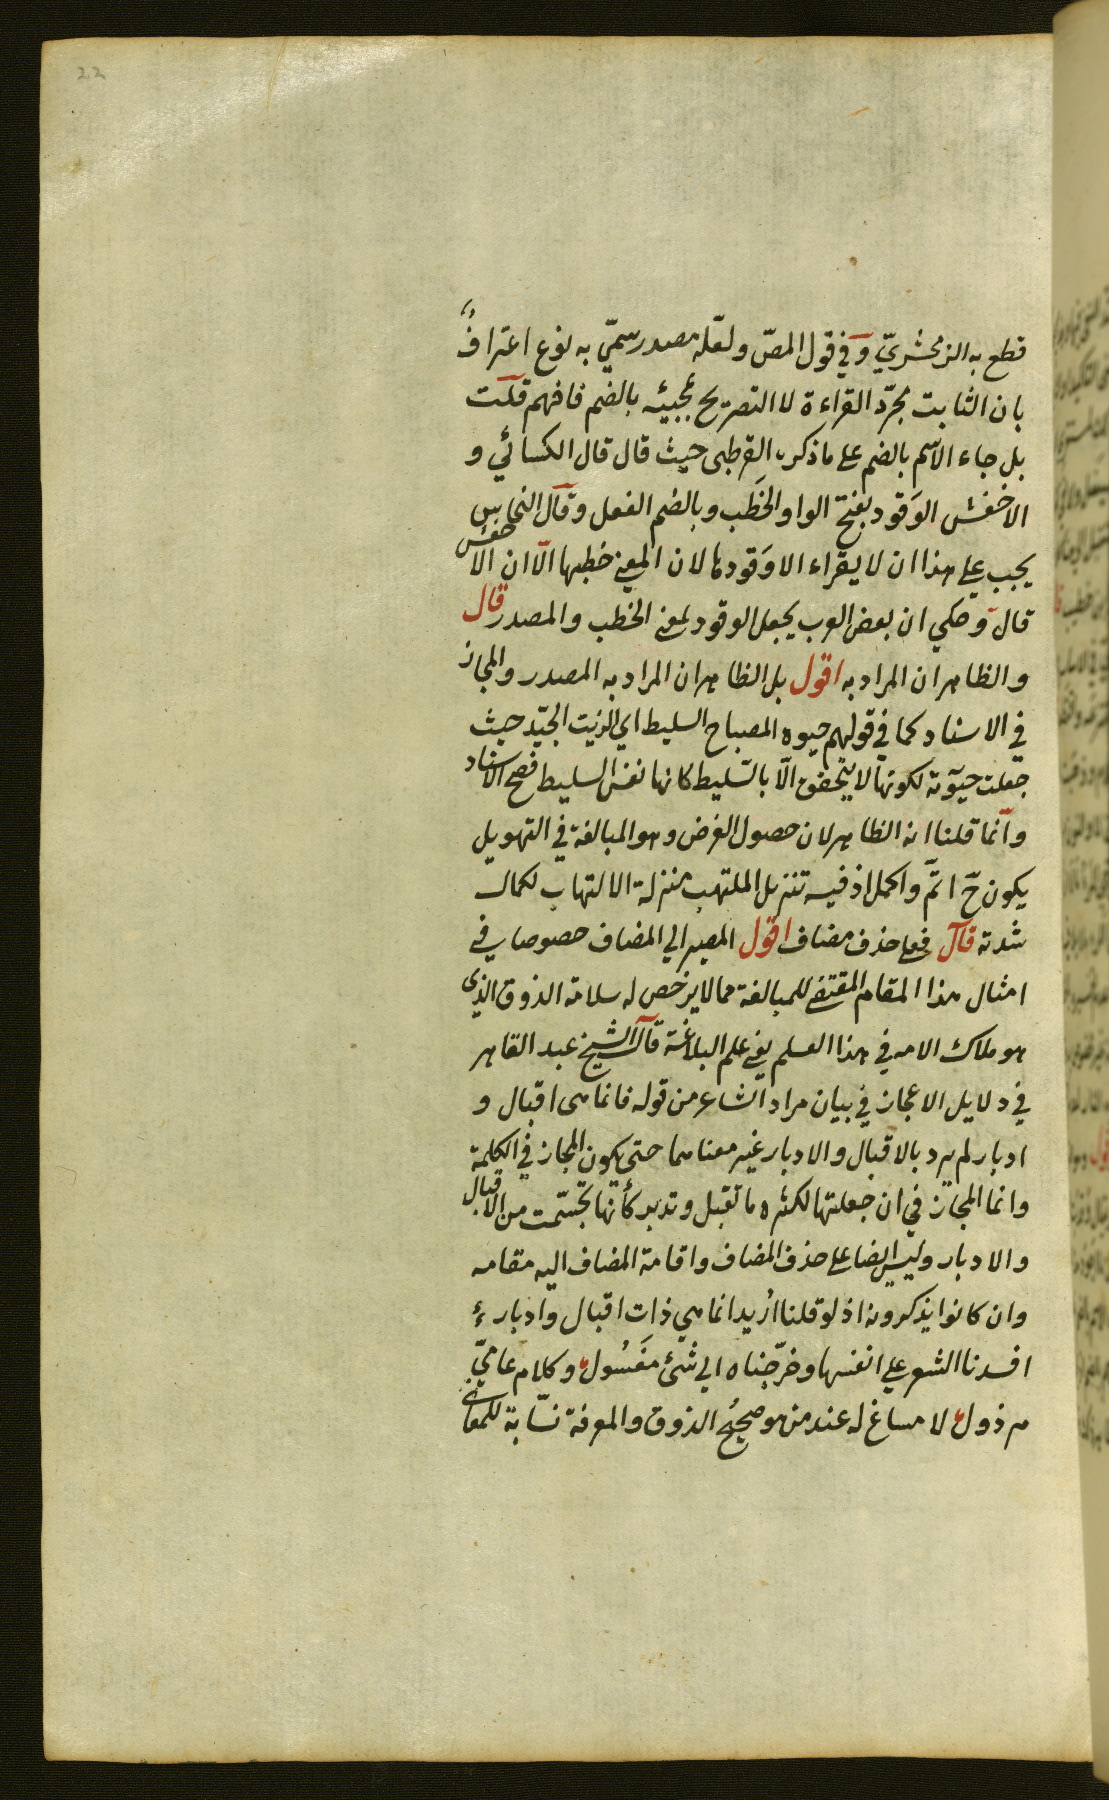 22
قطع به الزمخشريّ وفي قول المصّ ولعلّه مصدر سمّي به نوع اعترافٌ
بان الثابت مجرّد القراءة لا التصريح بمجيئه بالضم فافهم قلت
بل جاء الاسم بالضم على ما ذكره القرطبى حيث قال قال الكسائي و
الاخفش الوَقود بفتح الواو الحَطَب وبالضم الفعل وقال النحاس
يجب على هذا ان لا يقراء الا وَقودها لان المعنى حطبها الّا ان الاخفش
قال وحكي ان بعض العرب يجعل الوقود بمعنى الحطب والمصدر قال
والظاهر ان المراد به اقول بل الظاهر ان المراد به المصدر والمجاز
في الاسناد كما في قولهم حيوه المصباح السليط اي الزيت الجيّد حيث
جعلت حيوته لكونها لا يتحقق الّا بالسّليط كانها نفس السليط فصح الاسناد
وانّما قلنا انه الظاهر لان حصول الغرض وهو المبالغة في التهويل
يكون حّ اتمّ واكمل اذ فيه تنزيل الملتهب منزلة الالتهاب لكمال
شدته قال فعلى حذف مضاف اقول المصير الي المضاف خصوصا في
امثال هذا المقام المقتضى للمبالغة مما لا يرخص له سلامة الذوق الذى
هو ملاك الامر في هذا العلم يعنى علم البلاغة قال الشيخ عبد القاهر
في دلايل الاعجاز في بيان مراد الشاعر من قوله فانما هى اقبال و
ادبار لم يرد بالاقبال والادبار غير معناهما حتى يكون المجاز في الكلمة
وانما المجاز في ان جعلتها لكثره ما تقبل وتدبر كأنها تجسّمت من الاقبال
والادبار وليس ايضا على حذف المضاف واقامة المضاف اليه مقامه
وان كانوا يذكرونه اذ لو قلنا أريد انما هي ذات اقبال وادبار
افسدنا الشعر على انفسها وخرّجناه الي شئ مغسول وكلام عاميّ
مرذول لا مساغ له عند من هو صحيح الذوق والمعرفة نسّابة للمعاني